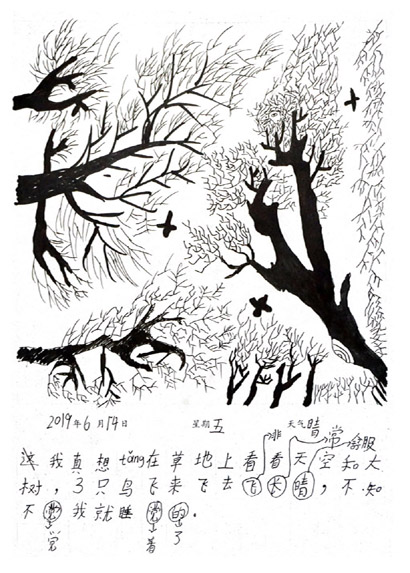 2019年6月14日 星期五 天气晴
非常舒服
我真想tǎng在草地上看看天空和大
树，3只鸟飞来飞去飞大晴，不知
不我就睡
觉着了